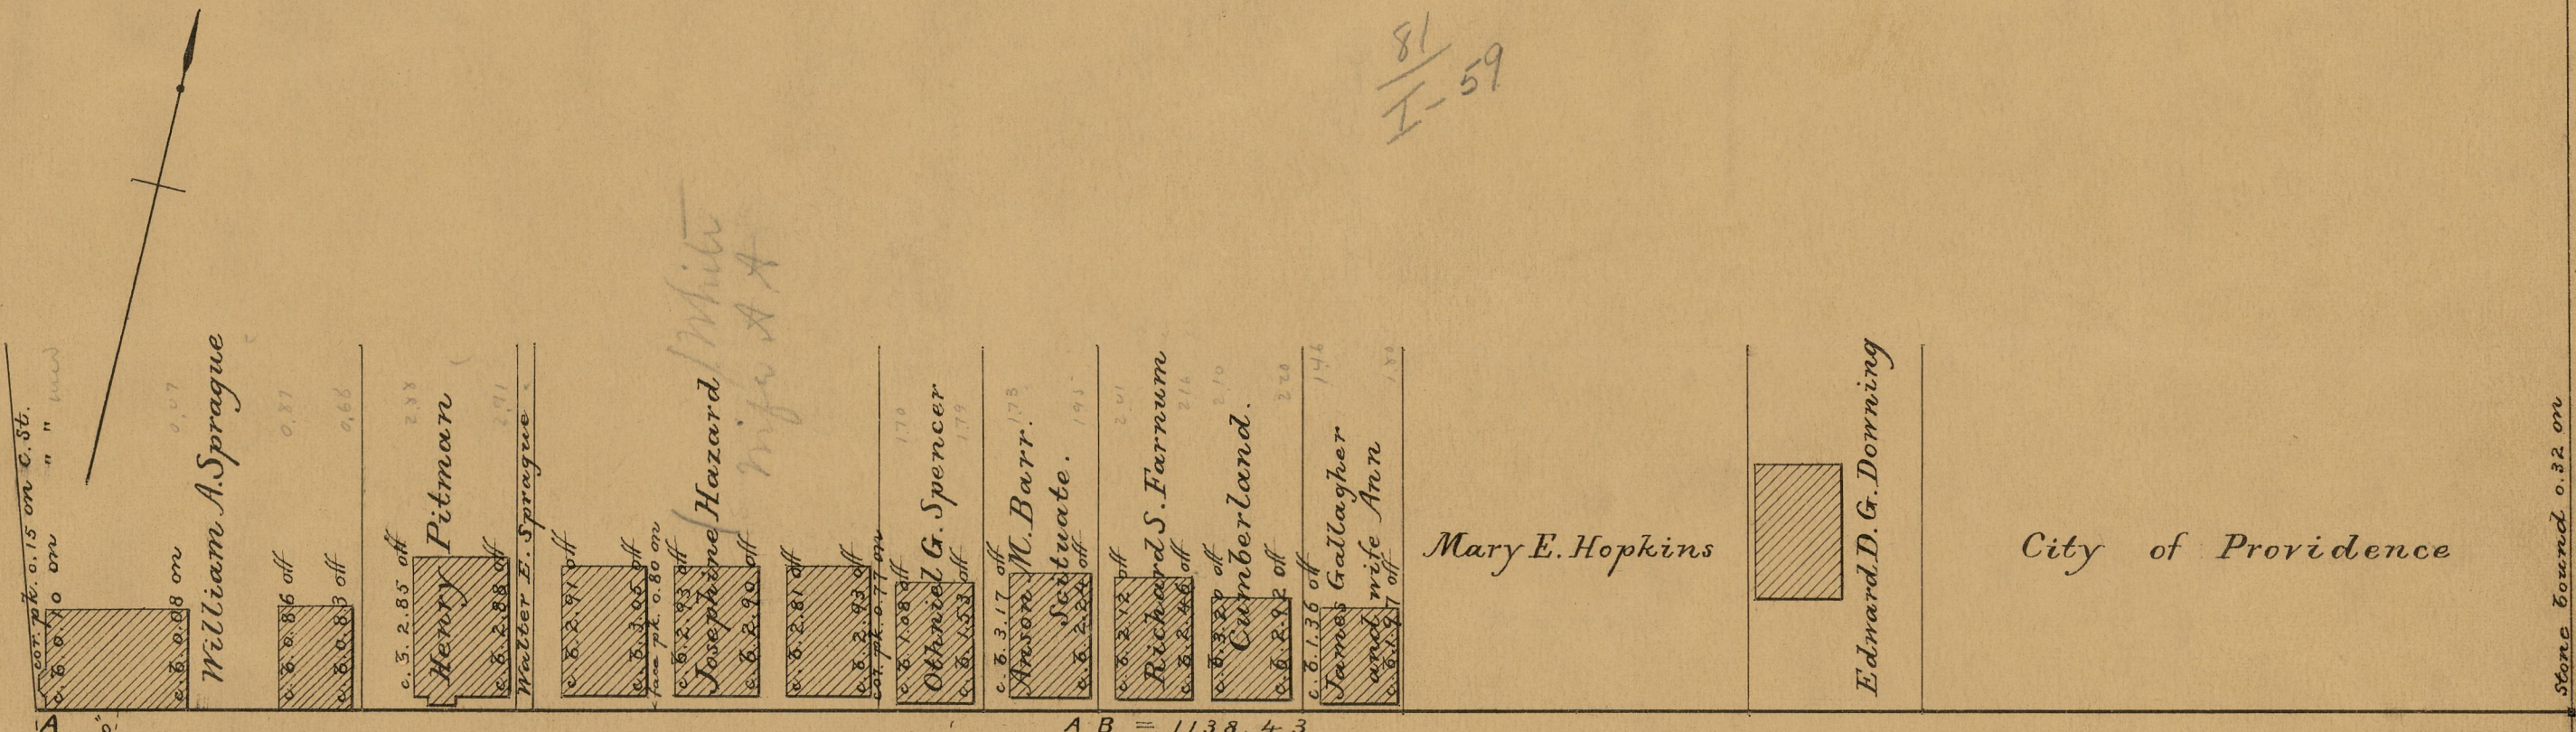 81
I - 59
cor. pk. 0.15 on C. St.
c. b. 0.10 on " "
c. b. 0.08 on
William A. Sprague
c. b. 0.86 off
c. b. 0.83 off
0.07
0.87
0.68
c. b. 2.85 off
Henry Pitman
c. b. 2.88 off
2.88
2.71
Walter E. Sprague
c. b. 2.91 off
c. b. 3.05 off
face pk. 0.80 on
c. b. 2.93 off
Josephine Hazard
White
wife
c. b. 2.90 off
c. b. 2.81 off
c. b. 2.93 off
cor. pk. 0.77 on
c. b. 1.08 off
Othniel G. Spencer
c. b. 1.53 off
1.70
1.79
c. b. 3.17 off
Anson M. Barr.
Scituate.
c. b. 2.24 off
1.73
1.95
c. b. 2.12 off
Richard S. Farnum
c. b. 2.46 off
2.01
2.16
c. b. 3.20 off
Cumberland.
c. b. 2.92 off
2.10
2.20
c. b. 1.36 off
James Gallagher
and wife Ann
c. b. 1.97 off
1.46
1.80
Mary E. Hopkins
Edward D. G. Downing
City of Providence
Stone bound 0.32 on
A
A B = 1138.43